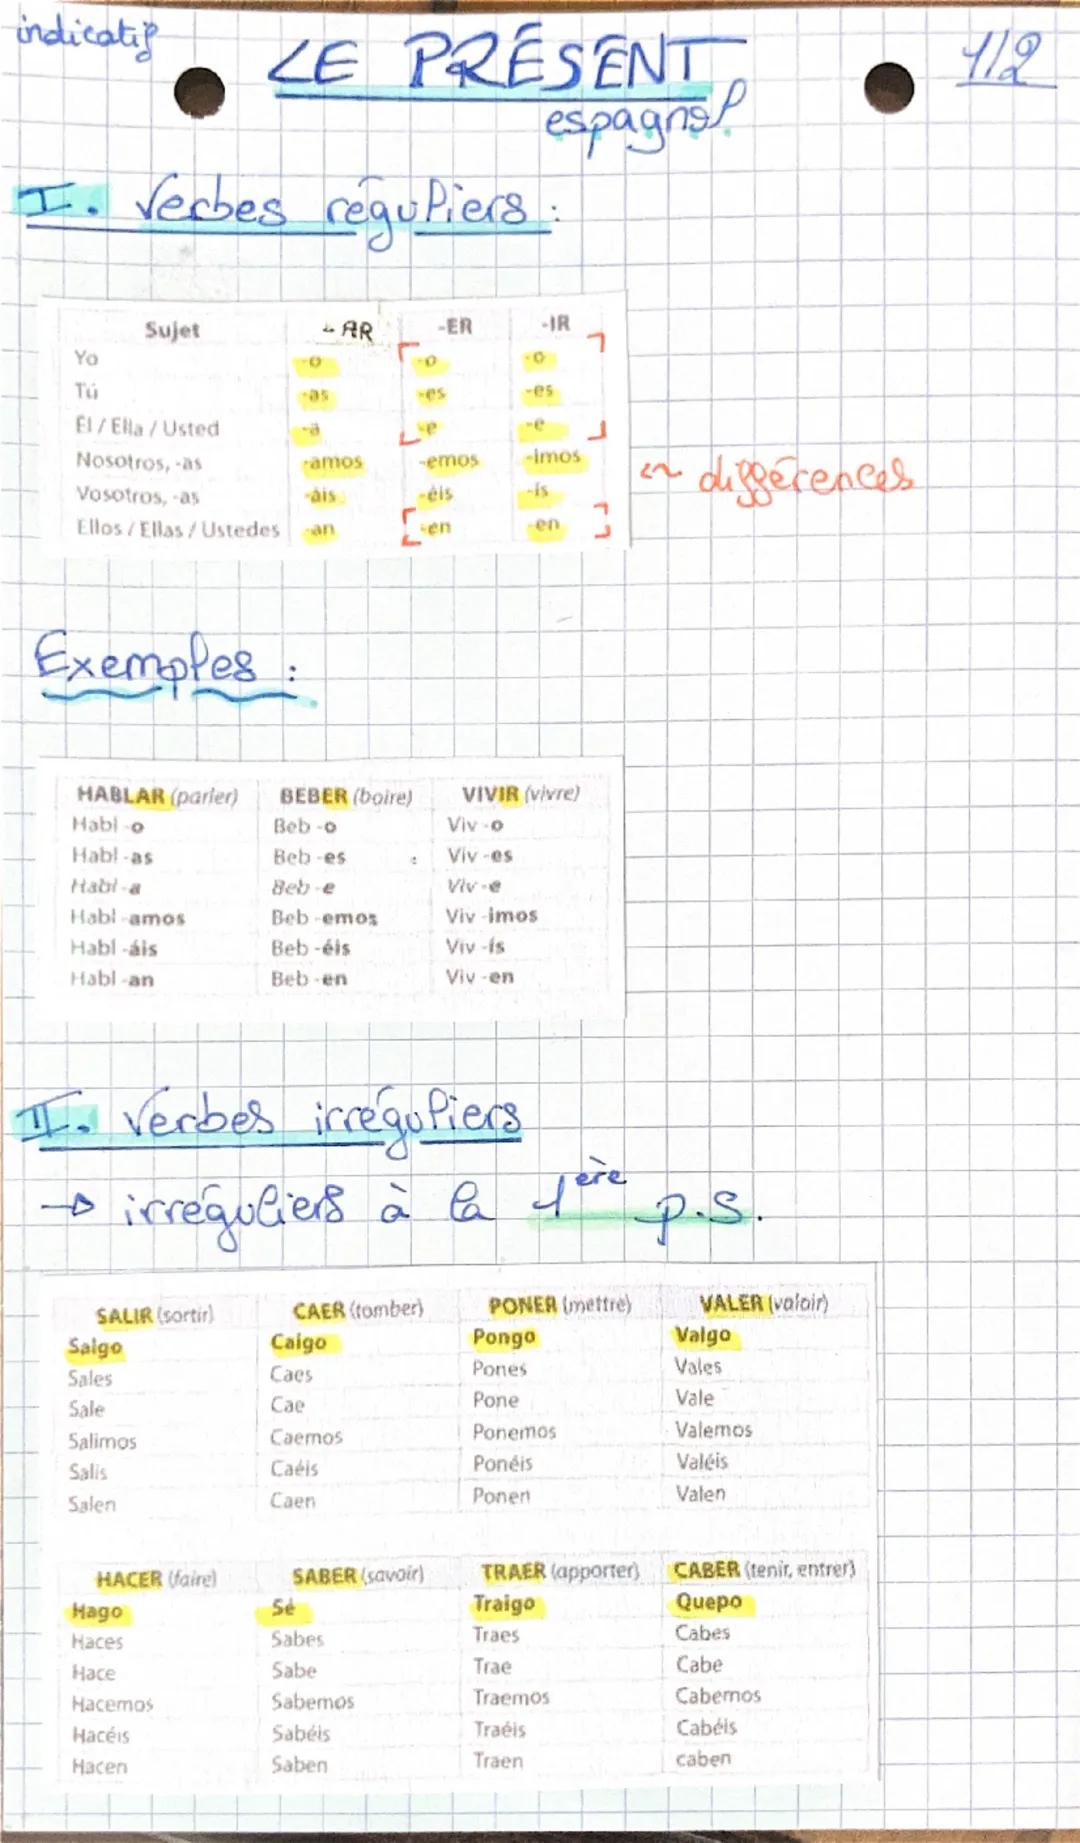 indicatif
LE PRÉSENT 1/2
espagnol
I. Verbes réguliers :
Sujet -AR -ER -IR
Yo -o -o -o
Tú -as -es -es
Él / Ella / Usted -a -e -e
Nosotros, -as -amos -emos -imos
différences
Vosotros, -as -áis -éis -ís
Ellos / Ellas / Ustedes -an -en -en
Exemples :
HABLAR (parler) BEBER (boire) VIVIR (vivre)
Habl -o Beb -o Viv -o
Habl -as Beb -es Viv -es
Habl -a Beb -e Viv -e
Habl -amos Beb -emos Viv -imos
Habl -áis Beb -éis Viv -ís
Habl -an Beb -en Viv -en
II. Verbes irréguliers
→ irréguliers à la 1ère p.s.
SALIR (sortir) CAER (tomber) PONER (mettre) VALER (valoir)
Salgo Caigo Pongo Valgo
Sales Caes Pones Vales
Sale Cae Pone Vale
Salimos Caemos Ponemos Valemos
Salís Caéis Ponéis Valéis
Salen Caen Ponen Valen
HACER (faire) SABER (savoir) TRAER (apporter) CABER (tenir, entrer)
Hago Sé Traigo Quepo
Haces Sabes Traes Cabes
Hace Sabe Trae Cabe
Hacemos Sabemos Traemos Cabemos
Hacéis Sabéis Traéis Cabéis
Hacen Saben Traen caben